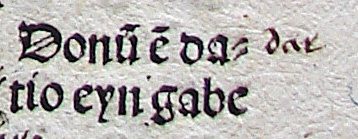 Donū ē da⸗ dat
tio eyn gabe